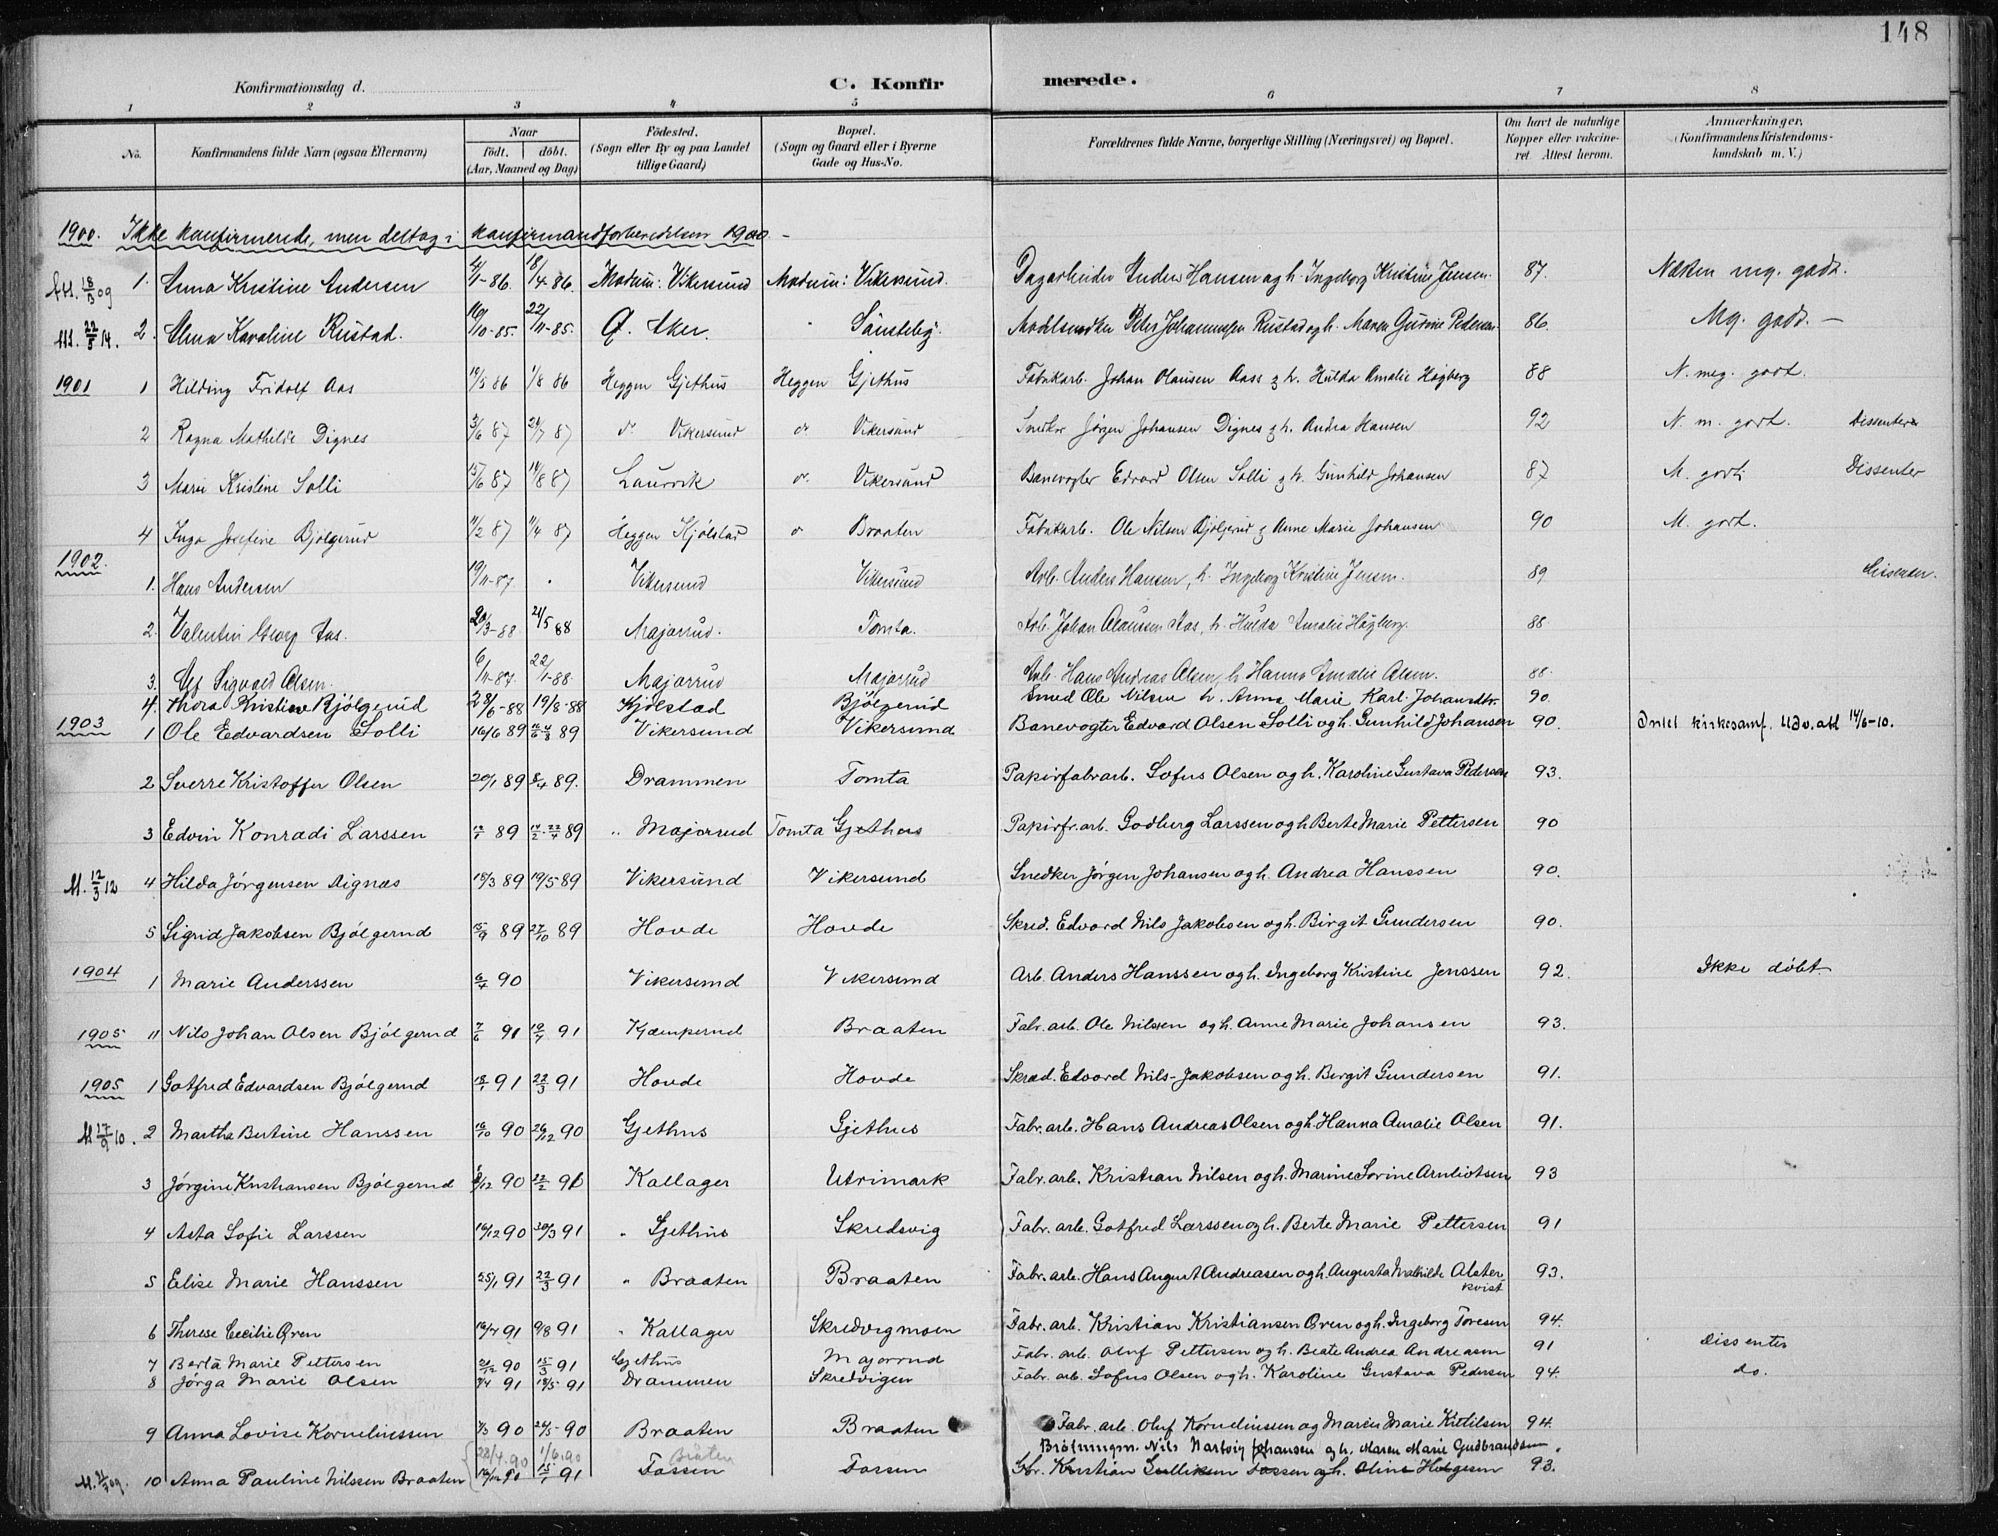 148
Konfirmationsdag d. C. Konfirmerede.
1 2 3 4 5 6 7 8
No. Konfirmandens fulde Navn (ogsaa Efternavn) Naar født. døbt. (Aar, Maaned og Dag) Fødested. (Sogn eller By og paa Landet tillige Gaard) Bopæl. (Sogn og Gaard eller i Byerne Gade og Hus-No. Forældrenes fulde Navne, borgerlige Stilling (Næringsvei) og Bopæl. Om havt de naturlige Kopper eller vakcineret. Attest herom. Anmærkninger. (Konfirmandens Kristendomskundskab m. V.)
1900. Ikke konfirmerede, men deltog i konfirmandforberedelsen 1900. -
18/3 09 1. Anna Kristine Andersen 4/1-86. 18/4-86. Modum: Vikersund Modum: Vikersund. Dagarbeider Anders Hansen og h. Ingeborg Kristine Jensen. 87. Næsten mg. godt.
22/3 14. 2. Alma Karoline Rustad. 10/10-85. 22/11-85. Ø. Aker. " Peter Johannesen Rustad og h. Maren Gurine Pedersen 86. Mg. godt. -
1901 1 Hilding Fridolf Aas 19/5 86 1/8 86 Heggen Gjethus Heggen Gjethus Fabrikarb. Johan Olausen Aass & h. Hulda Amalie Høgberg 88 N. meg. godt.
2 Ragna Mathilde Dignes 3/6 87 24/7 87 do Vikersund do. Vikersund Snedker Jørgen Johansen Dignes & h. Andrea Hansen 92 N. m. godt. Dissentere
3 Marie Kristine Solli 15/6 87 14/8 87 Laurvik do. Vikersund Banevogter Edvard Olsen Solli & h. Gunhild Johansen 87 M. godt. Dissenter
4 Inga Josefine Bjølgerud 11/2 87 11/4 87 Heggen Kjølstad do Braaten Fabrikarb. Ole Nilsen Bjølgerud & Anne Marie Johansen 90 M. godt.
1902. 1. Hans Andersen 19/11-87 . Vikersund Vikersund Arb. Anders Hansen, h. Ingeborg Kristine Jensen. 89 Dissenter.
2. Valentin Georg Aas. 20/3-88 21/5 88 Majorrud. Tomta. Arb. Johan Olaussen Aas, h. Hulda Amalie Høgberg. 88
3. Alf Sigvald Olsen. 6/11-87. 22/1-88. Majorrud Majorrud Arb. Hans Andreas Olsen, h. Hanna Amalie Olsen. 88.
4. Thora Kristine Bjølgerud 28/6-88 19/8-88 Kjølstad Bjølgerud Smed Ole Nilsen h. Anna Marie Karl. Johansdtr. 90
1903 1 Ole Edvardsen Solli 16/6 89 89 Vikersund Vikersund Banevogter Edvard Olsen Solli og h. Gunhild Johansen 90. Indel. kirkesamf. Udv. att 14/6-10.
2 Sverre Kristoffer Olsen 20/1 89 8/4 89. Drammen Tomta Papirfabrarb. Sofus Olsen og h. Karoline Gustava Pedersen 93.
3 Edvin Konradi Larssen 89 89 " Majorrud Tomta Gjethus Papirfr.arb. Godberg Larssen og h Berte Marie Pettersen 90
M. 12/3 12 4 Hilda Jørgensen Dignæs 15/3 89 19/5 89 Vikersund Vikersund Snedker Jørgen Johansen og h. Andrea Hanssen 90.
5 Sigrid Jakobsen Bjølgerud 15/9 89 27/10 89 Hovde Hovde Skred. Edvard Nils Jakobsen og h. Birgit Gundersen 90.
1904 1 Marie Anderssen 6/4 90 Vikersund Vikersund Arb. Anders Hanssen og h. Ingeborg Kristine Jenssen 92. Ikke døbt
1905 11 Nils Johan Olsen Bjølgerud 7/6 91 19/7 91 Kjæmperud Braaten Fabr. arb. Ole Nilssen og h. Anne Marie Johansen 93.
1905 1 Gotfred Edvardsen Bjølgerud 91 22/3 91 Hovde Hovde Skræd. Edvard Nils-Jakobsen og h. Birgit Gundersen 91.
M 17/9 10. 2 Martha Bertine Hanssen 16/10 90 26/12 90 Gjethus Gjethus Fabr. arb. Hans Andreas Olsen og h. Hanna Amalie Olsen 91.
3 Jørgine Kristiansen Bjølgerud 8/12 90 22/2 91 Kallager Utrimark Fabr. arb. Kristian Nilsen og h. Marine Sorine Arnliotsen 93
4 Asta Sofie Larssen 16/12 90 30/3 91 " Gjethus Skredsvig Fabr. arb. Gotfred Larssen og h. Berte Marie Pettersen 91
5 Elise Marie Hanssen 25/1 91 22/3 91 " Braaten Braaten Fabr. arb. Hans August Andreasen og h. Augusta Mathilde Alsterkvist 93.
6 Therese Cecilie Øren 16/4 91 9/8 91 " Kallager Skredvigmoen Fabr. arb. Kristian Kristiansen Øren og h. Ingeborg Toresen 94.
7 Berta Marie Pettersen 21/12 90 15/3 91 Gjethus Majorrud Fabr. arb. Oluf Pettersen og h. Beate Andrea Andreasen 91 Dissenter
8 Jørga Marie Olsen 7/4 91 18/5 91 Drammen Skredvigen Fabr. arb. Sofus Olsen og h. Karoline Gustava Pedersen 94. do.
9 Anna Lovise Korneliussen 7/3 90 26/5-90 Braaten Braaten Fabr. arb. Oluf Korneliussen og Maren Marie Kittilsen 94.
28/4.90 1/6.90 Bråten Nils Hartvig Johansen og h. Maren Marie Gudbrandsen.
10 Anna Pauline Nilssen Braaten 16/12 91 15/1 91 Fossen Fossen Gbr. Kristian Gulliksen Fossen og h. Oline Helgesen 93.